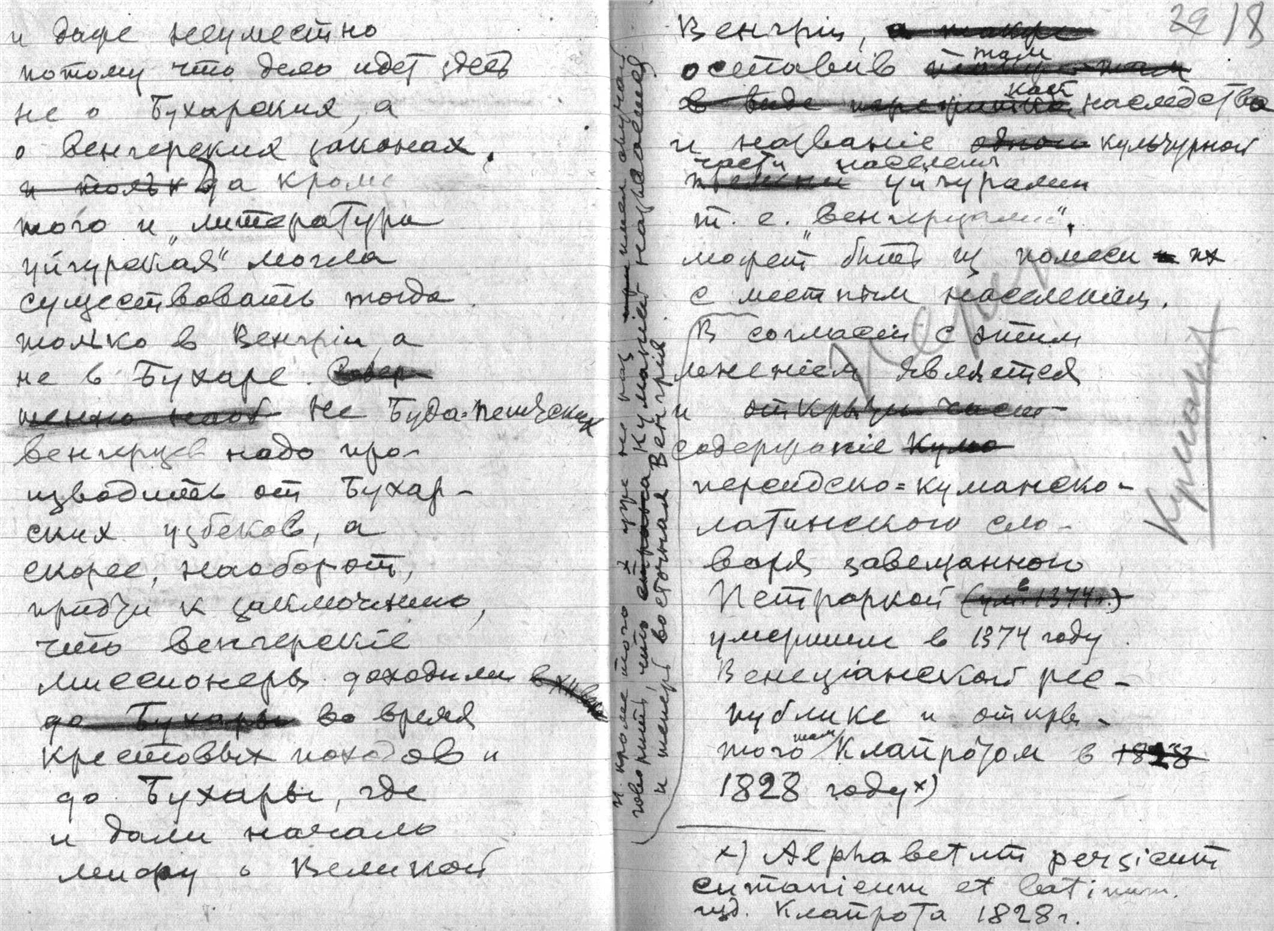 и даже неуместно
потому что дело идет здесь
не о Бухарских, а
о Венгерских законах.
и только Да кроме
того и „литература
уйгурская" могла
существовать тогда
только в Венгріи, а
не в Бухаре.
Не Буда=пештских
венгерцев надо про-
изводить от Бухар-
ских узбеков, а
скорее, наоборот,
придти к заключенію,
что венгерскіе
миссионеры доходили
до Бухары во время
крестовых походов и
до Бухары, где
и дали начало
мифу о Великой
и кроме того уже не раз
говорить, что Куманія
и теперь восточная Венгрія
29 18
Венгріи, а также
оставив там
в виде наследство
и названіе одной культурной
части населенія
уйгурами
т. е. „венгерцами",
может быть из помеси их
с местным населеніем.
В согласіи с этим
мненіем является
и открытіи
содержаніе
персидско=куманско-
латинского сло-
варя завещанного
Петраркой (ум. в 1374 г.)
умершим в 1374 году
Венеціанской рес-
публике и откры-
того там Клапротом в 1828
1828 году х)
х) Alphabetum persicum
cumanicum et latinum.
изд. Клапрота 1828 г.